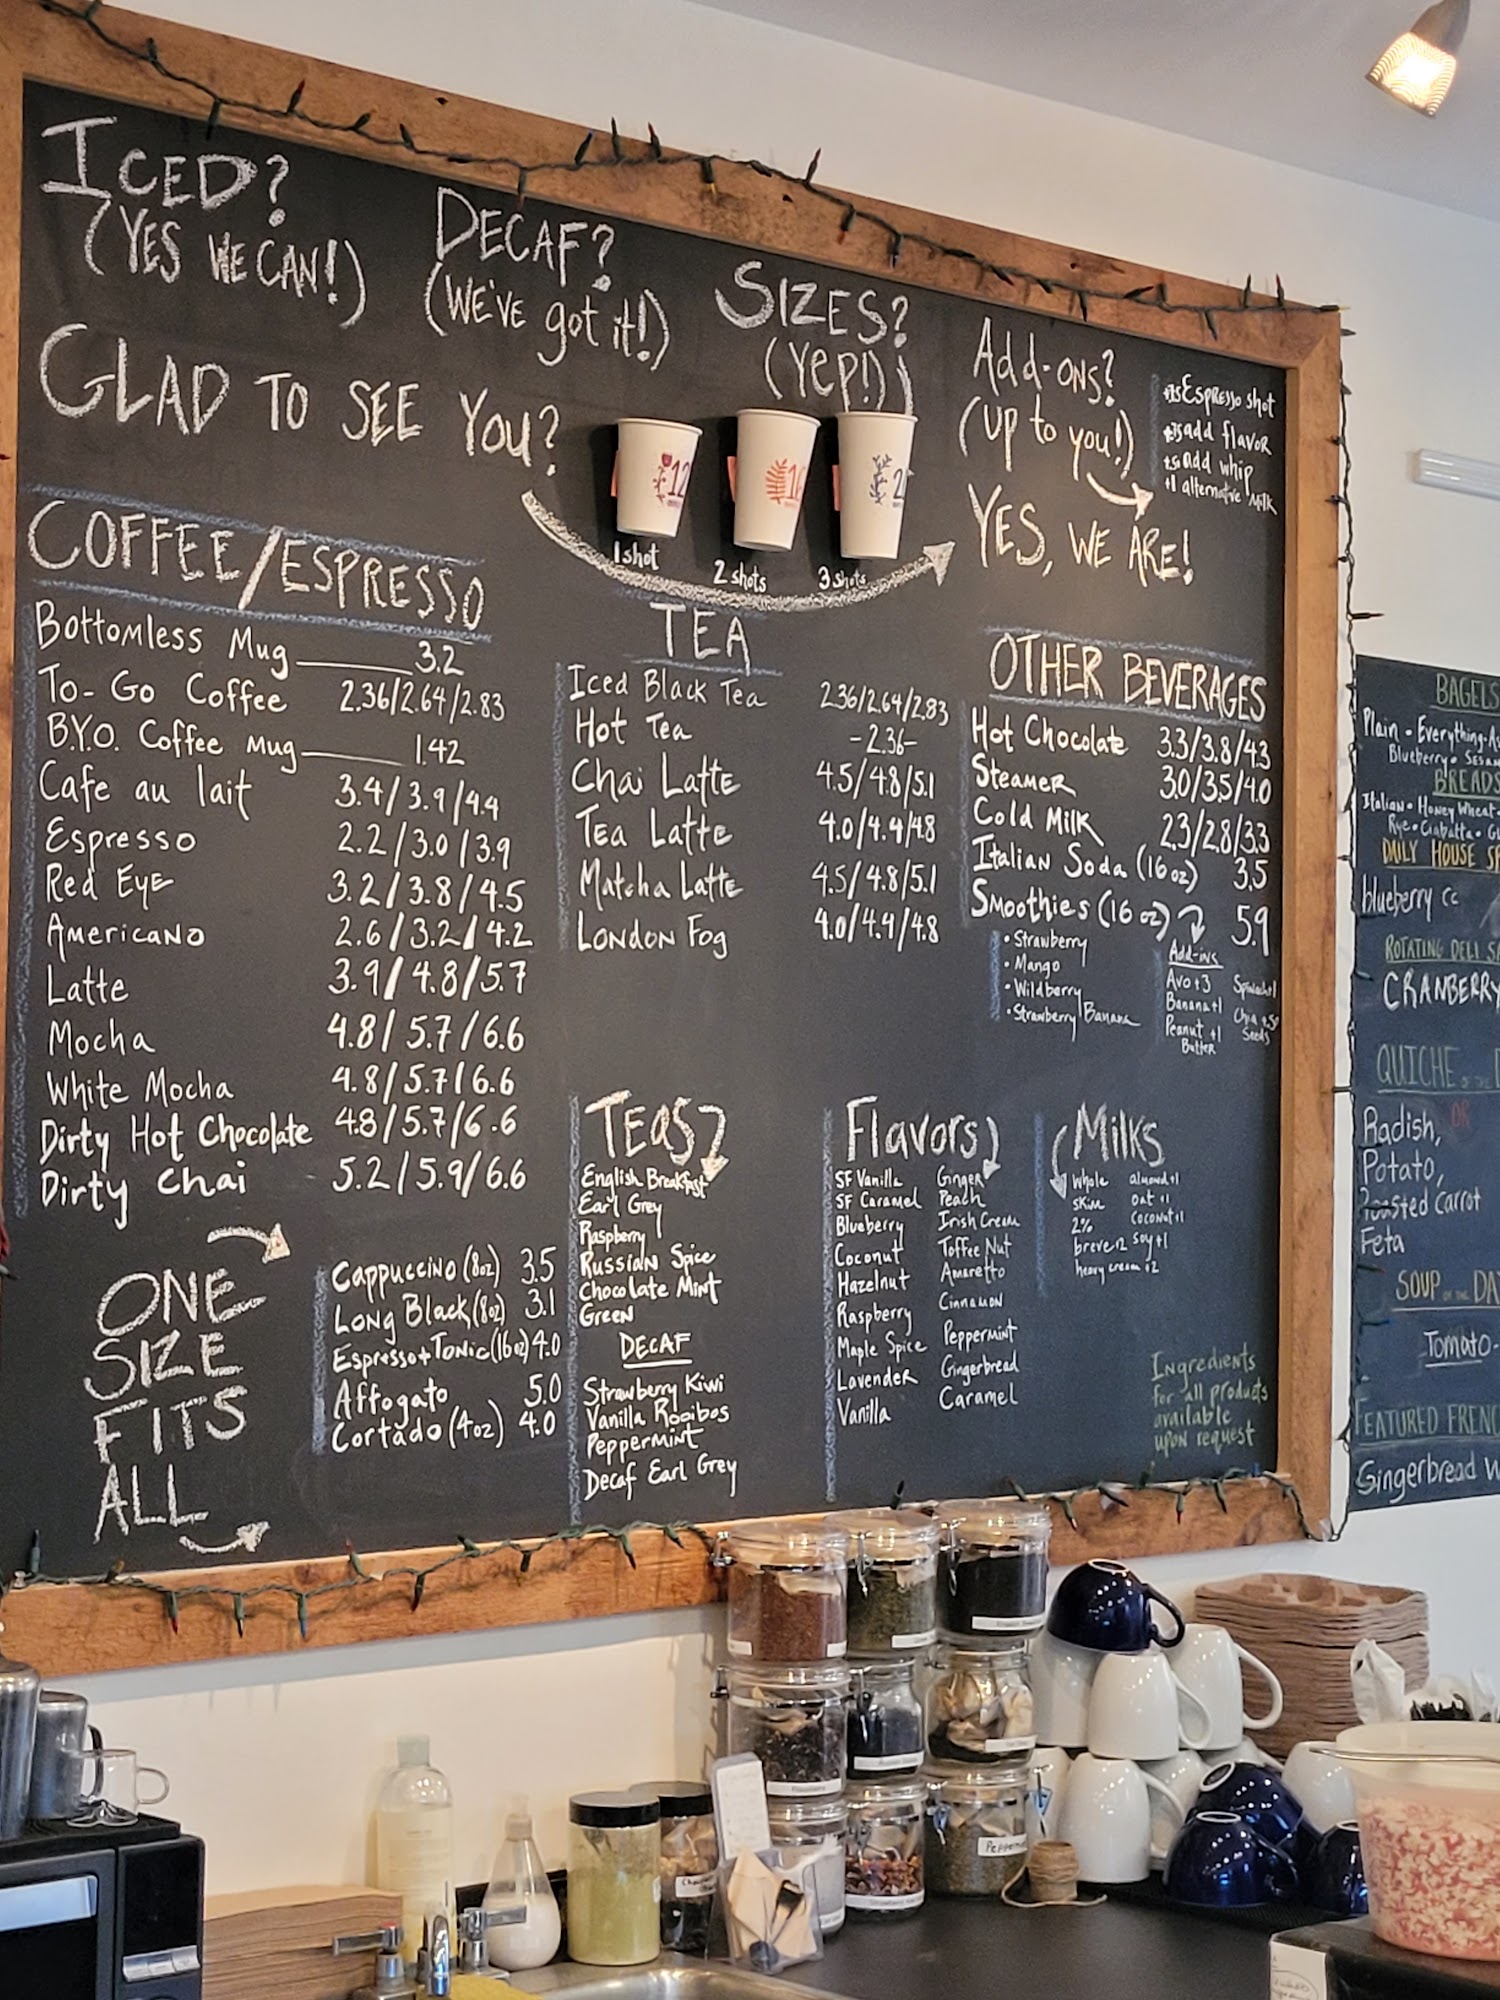 ICED?
(YES WE CAN!)
DECAF?
(WE'VE got it!)
SIZES?
(YEP!)
Add-ons?
(up to you!)
+.75 Espresso shot
+.75 add flavor
+.50 add whip
+1 alternative milk
GLAD TO SEE YOU?
12
16
1 shot
2 shots
3 shots
YES, WE ARE!
COFFEE/ESPRESSO
Bottomless Mug 3.2
To-Go Coffee 2.36/2.64/2.83
B.Y.O. Coffee Mug 1.42
Cafe au lait 3.4/3.9/4.4
Espresso 2.2/3.0/3.9
Red Eye 3.2/3.8/4.5
Americano 2.6/3.2/4.2
Latte 3.9/4.8/5.7
Mocha 4.8/5.7/6.6
White Mocha 4.8/5.7/6.6
Dirty Hot Chocolate 4.8/5.7/6.6
Dirty Chai 5.2/5.9/6.6
ONE
SIZE
FITS
ALL
Cappuccino (8oz) 3.5
Long Black (8oz) 3.1
Espresso+Tonic (16oz) 4.0
Affogato 5.0
Cortado (4oz) 4.0
TEA
Iced Black Tea 2.36/2.64/2.83
Hot Tea -2.36-
Chai Latte 4.5/4.8/5.1
Tea Latte 4.0/4.4/4.8
Matcha Latte 4.5/4.8/5.1
London Fog 4.0/4.4/4.8
OTHER BEVERAGES
Hot Chocolate 3.3/3.8/4.3
Steamer 3.0/3.5/4.0
Cold Milk 2.3/2.8/3.3
Italian Soda (16oz) 3.5
Smoothies (16oz) 5.9
• Strawberry
• Mango
• Wildberry
• Strawberry/Banana
Add-ins
Avo +3
Banana +1
Peanut +1
Butter
Spinach +1
Chia +.50
Seeds
TEAS
English Breakfast
Earl Grey
Raspberry
Russian Spice
Chocolate Mint
Green
DECAF
Strawberry Kiwi
Vanilla Rooibos
Peppermint
Decaf Earl Grey
Flavors
SF Vanilla
SF Caramel
Blueberry
Coconut
Hazelnut
Raspberry
Maple Spice
Lavender
Vanilla
Ginger
Peach
Irish Cream
Toffee Nut
Amaretto
Cinnamon
Peppermint
Gingerbread
Caramel
Milks
whole
skim
2%
breve +2
heavy cream +2
almond +1
oat +1
coconut +1
soy +1
Ingredients
for all products
available
upon request
BAGELS
Plain • Everything •
Blueberry •
BREADS
Italian • Honey Wheat •
Rye • Ciabatta •
DAILY HOUSE
blueberry cc
ROTATING DELI
CRANBERRY
QUICHE OF THE
Radish, OR
Potato,
Roasted Carrot
Feta
SOUP OF THE DA
Tomato-
FEATURED FRENC
Gingerbread W